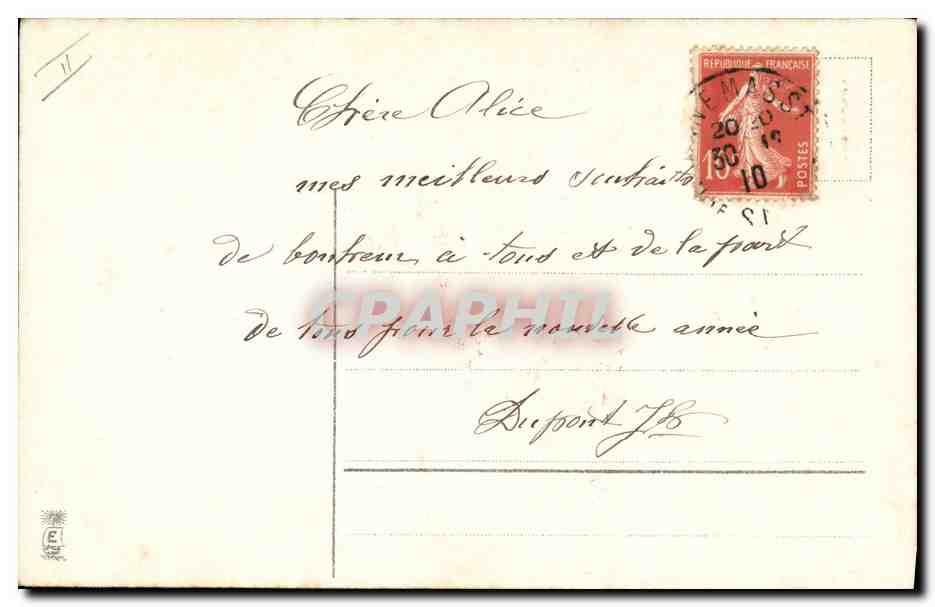 Chère Alice
mes meilleurs souhaits
de bonheur à tous et de la part
de tous pour la nouvelle année
Dupont
REPUBLIQUE FRANÇAISE
10
POSTES
EMASS
20
30
10
CPAPHIL
E